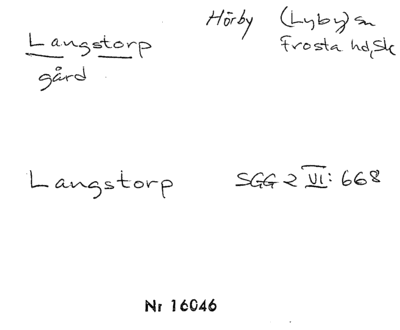 Langstorp
gård
Hörby (Lyby) sn
Frosta hd, Sk
Langstorp SGG 2 VI: 668
Nr 16046